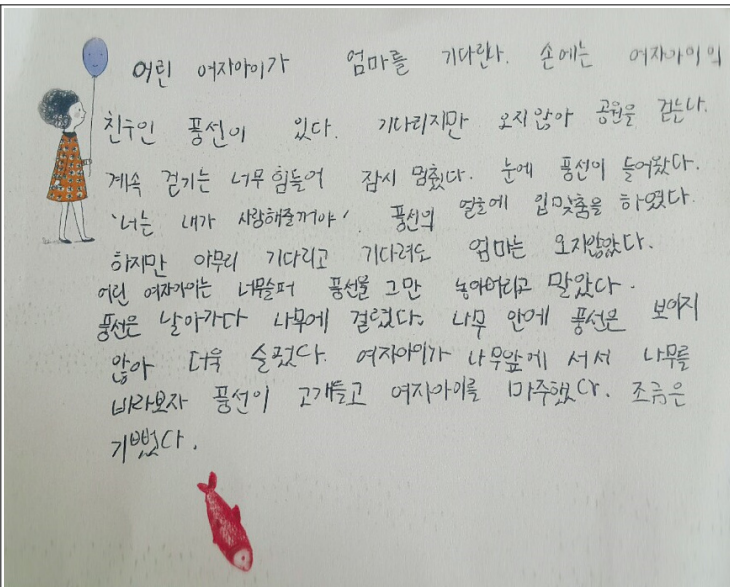 어린 여자아이가 엄마를 기다린다. 손에는 여자아이의
친구인 풍선이 있다. 기다리지만 오지않아 공원을 걷는다.
계속 걷기는 너무 힘들어 잠시 멈췄다. 눈에 풍선이 들어왔다.
'너는 내가 사랑해줄꺼야'. 풍선의 얼굴에 입맞춤을 하였다.
하지만 아무리 기다리고 기다려도 엄마는 오지않았다.
어린 여자아이는 너무슬퍼 풍선을 그만 놓아버리고 말았다.
풍선은 날아가다 나무에 걸렸다. 나무 안에 풍선은 보이지
않아 더욱 슬펐다. 여자아이가 나무앞에 서서 나무를
바라보자 풍선이 고개들고 여자아이를 마주했다. 조금은
기뻤다.